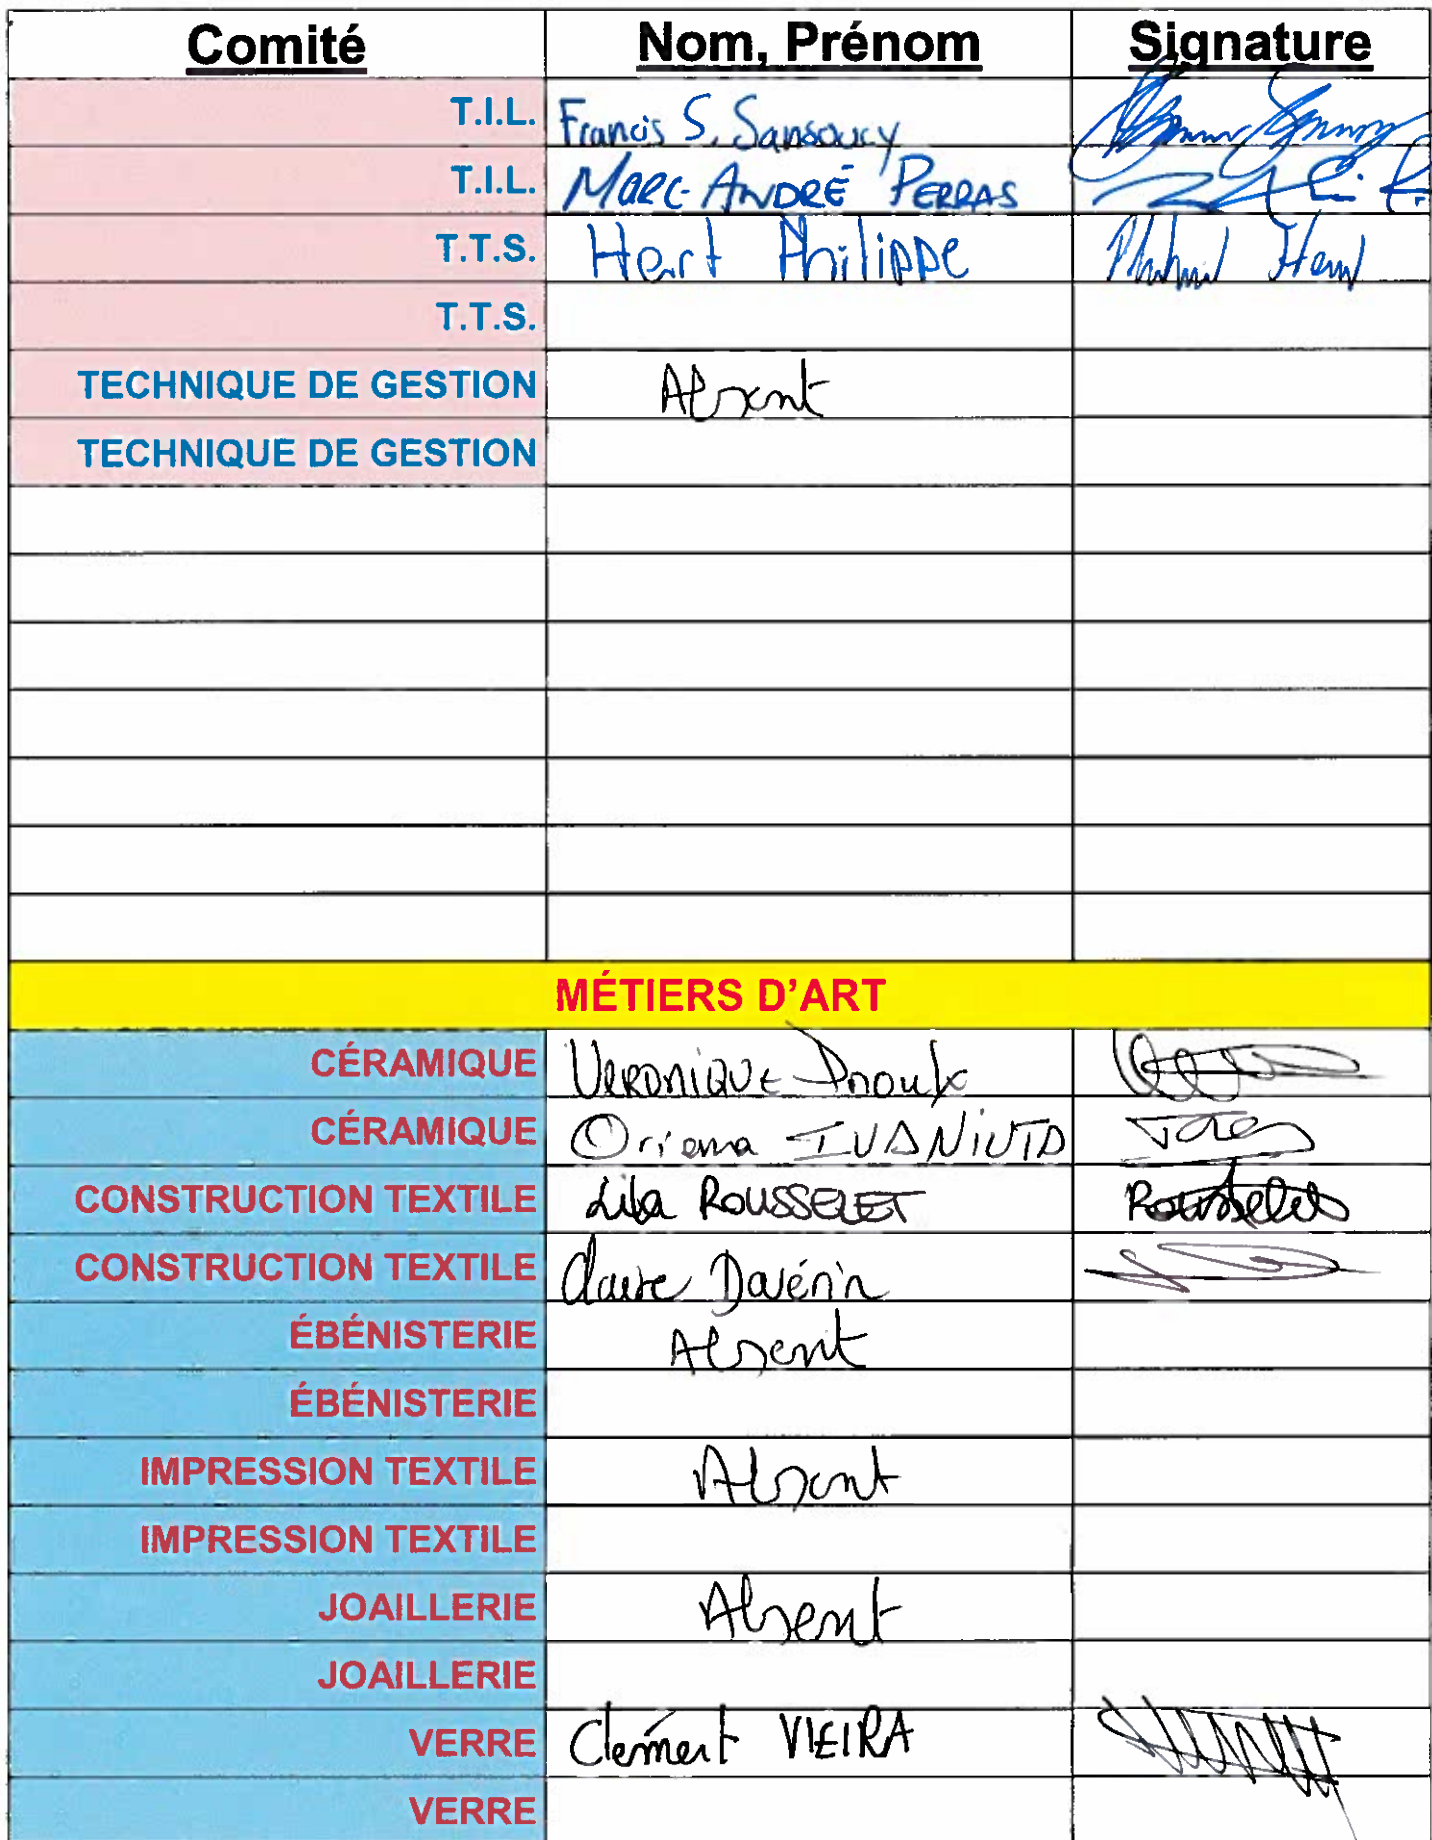 Comité Nom, Prénom Signature
T.I.L. Francis S. Sansoucy
T.I.L. MARC-ANDRÉ PERRAS
T.T.S. Hert Philippe
T.T.S.
TECHNIQUE DE GESTION Absent
TECHNIQUE DE GESTION
MÉTIERS D'ART
CÉRAMIQUE VERONIQUE Proulx
CÉRAMIQUE IVANIUTA
CONSTRUCTION TEXTILE Lila ROUSSELET Rousselet
CONSTRUCTION TEXTILE Claire Davénin
ÉBÉNISTERIE Absent
ÉBÉNISTERIE
IMPRESSION TEXTILE Absent
IMPRESSION TEXTILE
JOAILLERIE Absent
JOAILLERIE
VERRE Clément VIEIRA
VERRE